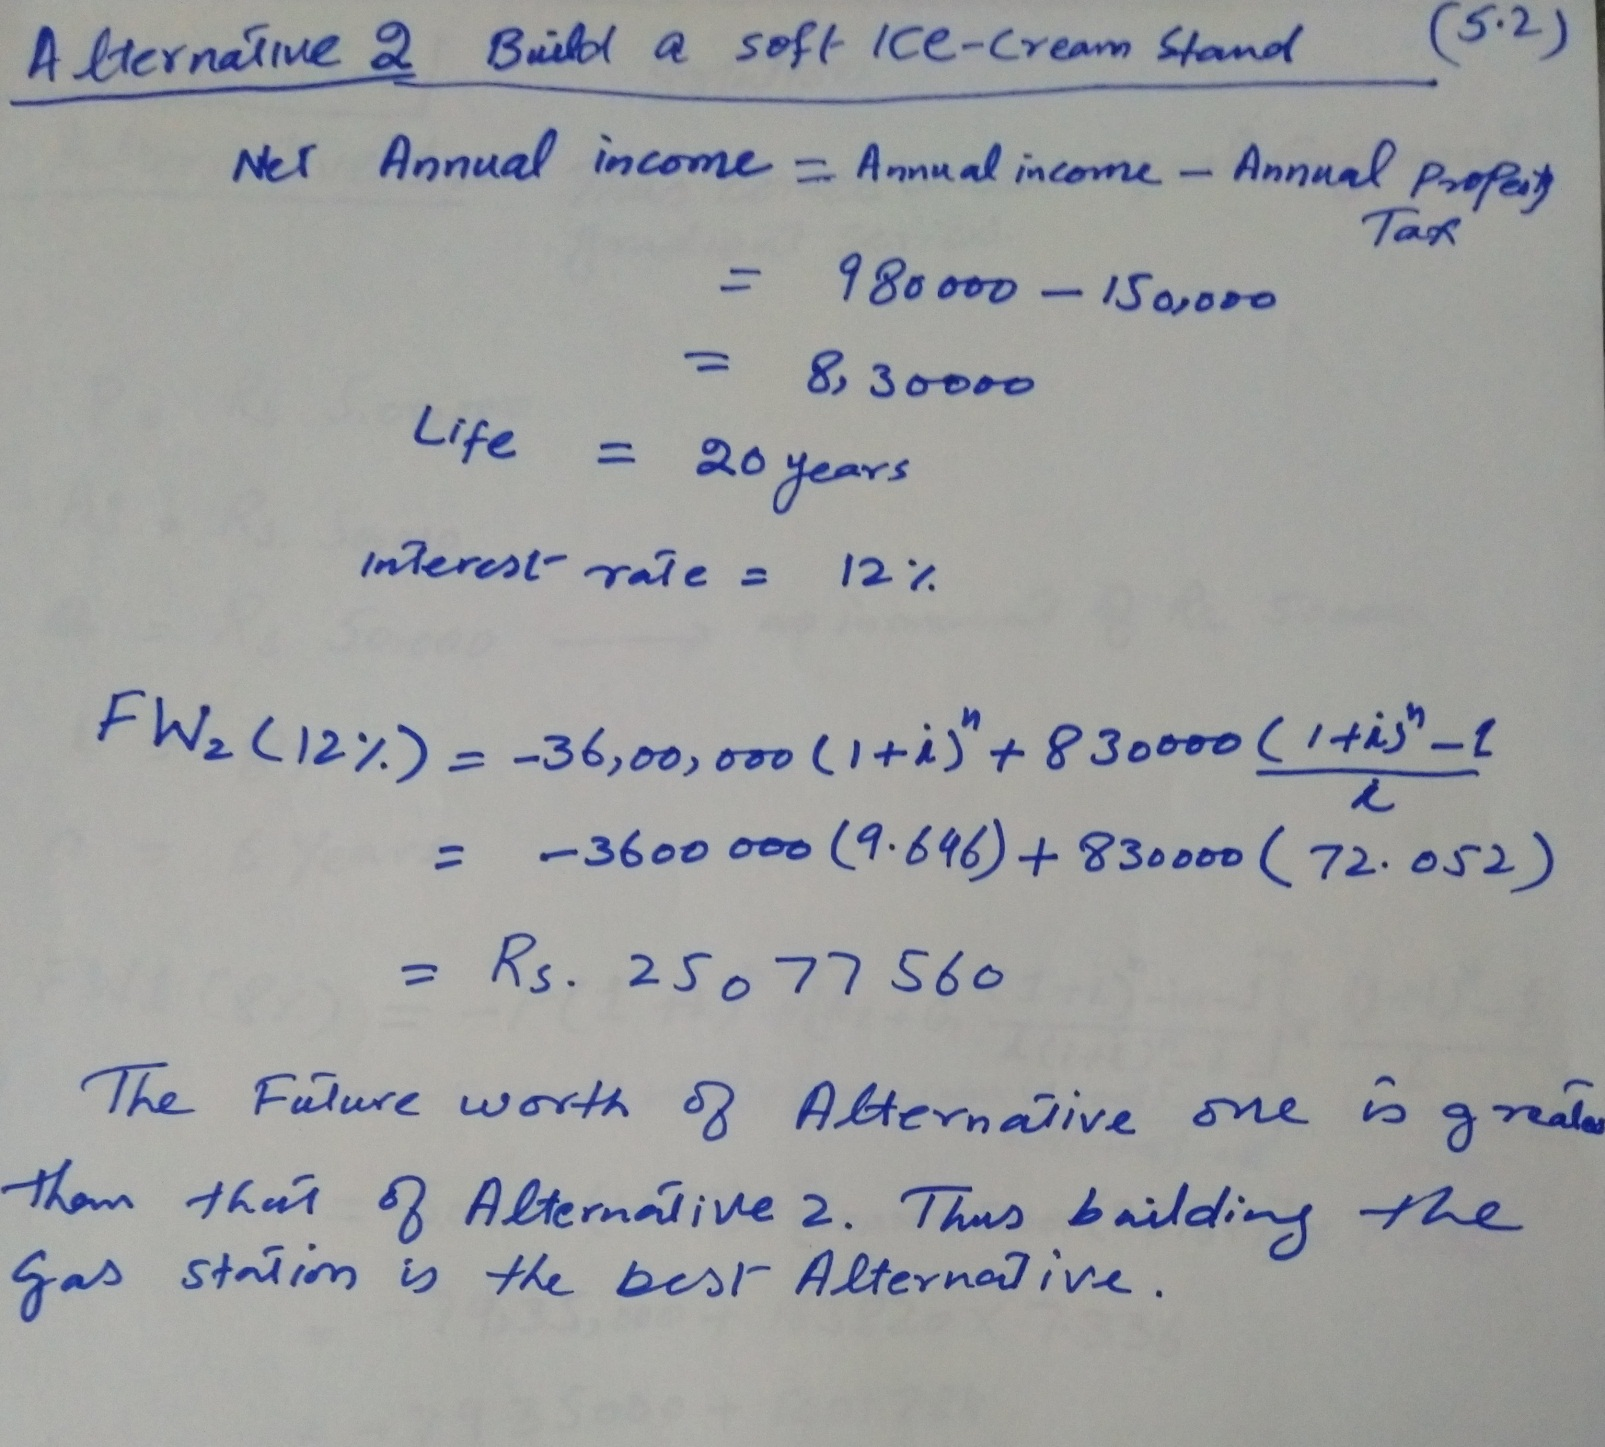 Alternative 2 Build a soft Ice-Cream Stand (5.2)
Net Annual income = Annual income - Annual Property
Tax
= 980000 - 150,000
= 8,30000
Life = 20 years
interest rate = 12%
FW₂ (12%) = -36,00,000 (1+i)ⁿ + 830000 (1+i)ⁿ-1
i
= -3600 000 (9.646) + 830000 (72.052)
= Rs. 25077560
The Future worth of Alternative one is greater
than that of Alternative 2. Thus building the
gas station is the best Alternative.